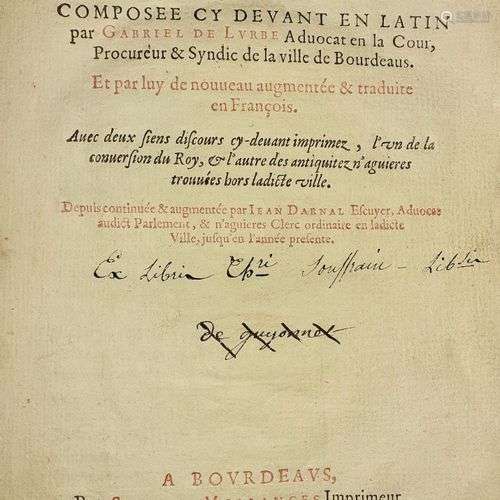 COMPOSEE CY DEVANT EN LATIN
par GABRIEL DE LVRBE Aduocat en la Cour,
Procureur & Syndic de la ville de Bourdeaus.
Et par luy de nouueau augmentée & traduite
en François.
Auec deux siens discours cy-deuant imprimez, l'vn de la
conuersion du Roy, & l'autre des antiquitez n'aguieres
trouuées hors ladicte ville.
Depuis continuée & augmentée par IEAN DARNAL Escuyer, Aduocat
audict Parlement, & n'aguieres Clerc ordinaire en ladicte
Ville, jusqu'en l'année presente.
Ex Libris Soufrain
de guyonnet
A BOVRDEAVS,
Imprimeur